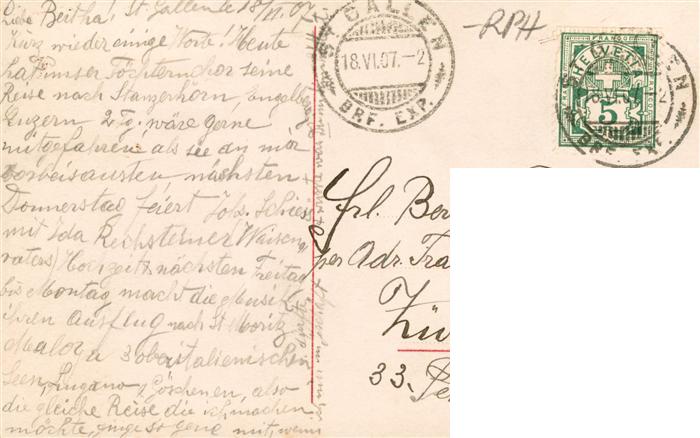 Liebe Bertha! St Gallen d 18/VI. 07.
Kurz wieder einige Worte! Heute
hat unser Töchternchor seine
Reise nach Stanzerhorn, Engelberg
Luzern 2 Tg. wäre gerne
mitgefahren als sie an mir
vorbeisausten, nächsten
Donnerstag feiert Johs. Schiess
mit Ida Rechsteiner (Waisen
vaters) Hochzeit, nächsten Freitag
bis Montag macht die Musik
ihren Ausflug nach St Moritz
Maloya 3 oberitalienischen
Seen, Lugano, Göschenen, also
die gleiche Reise die ich machen
möchte, ginge so gerne mit, wenn
ST. GALLEN
18.VI.07.-2
BRF. EXP.
-RPH
FRANCO
HELVETIA
5
BRF. EXP.
Frl. Ber
per Adr. Fra
Zü
33.